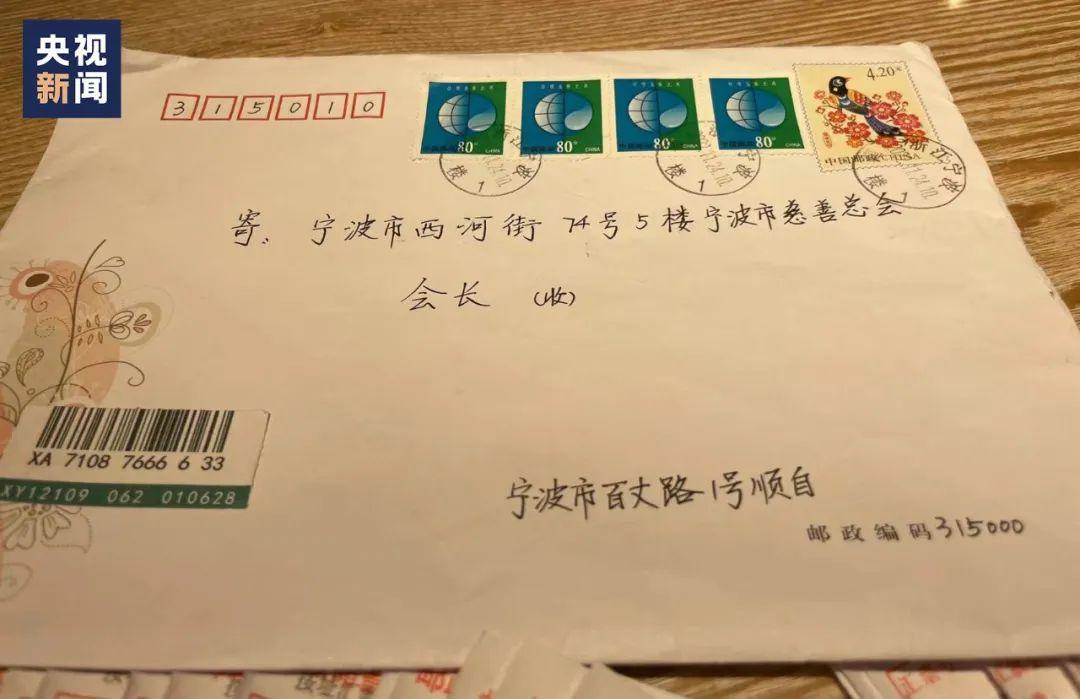 央视
新闻
315010
80
80
80
80
4.20元
CHINA
CHINA
中国邮政 CHINA
浙江宁波
寄: 宁波市西河街74号5楼宁波市慈善总会
会长 (收)
XA 7108 7666 6 33
XY12109 062 010628
宁波市百丈路1号顺自
邮政编码315000